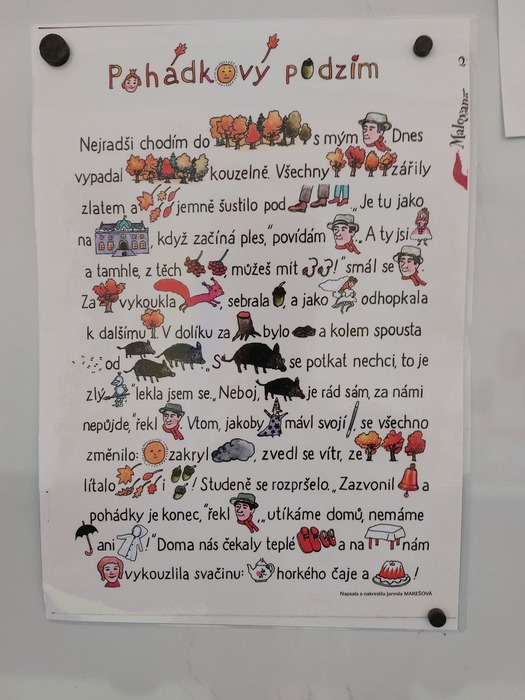 Pohádkový podzim
Malovaná
Nejradši chodím do s mým Dnes
vypadal kouzelně. Všechny zářily
zlatem a jemně šustilo pod „Je tu jako
na , když začíná ples,“ povídám . „A ty jsi
a tamhle, z těch můžeš mít !“ smál se .
Za vykoukla , sebrala , a jako odhopkala
k dalšímu . V dolíku za bylo a kolem spousta
od . „S se potkat nechci, to je
zlý ,“ lekla jsem se. „Neboj, je rád sám, za námi
nepůjde,“ řekl . Vtom, jakoby mávl svojí , se všechno
změnilo: zakryl , zvedl se vítr, ze
lítalo i ! Studeně se rozpršelo. „Zazvonil a
pohádky je konec,“ řekl , „utíkáme domů, nemáme
ani !“ Doma nás čekaly teplé a na nám
vykouzlila svačinu: horkého čaje a !
Napsala a nakreslila Jarmila MAREŠOVÁ